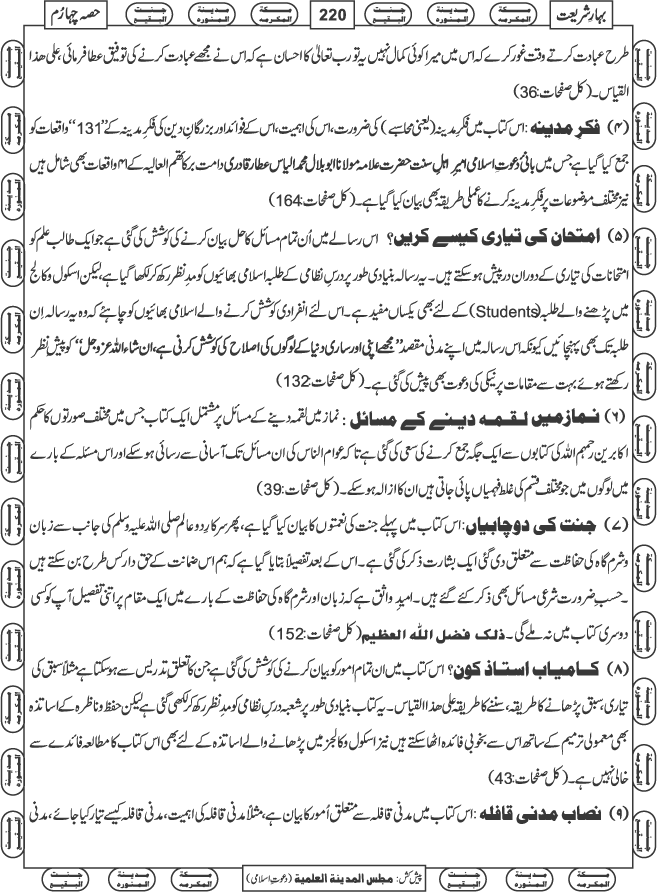 بہارِ شریعت
مدینۃ المنورہ
مکۃ المکرمہ
220
جنت البقیع
مدینۃ المنورہ
مکۃ المکرمہ
حصہ چہارم
طرح عبادت کرتے وقت غور کرے کہ اس میں میرا کوئی کمال نہیں یہ تو رب تعالیٰ کا احسان ہے کہ اس نے مجھے عبادت کرنے کی توفیق عطا فرمائی، علی ھذا
القیاس۔ (کل صفحات:36)
(۴) فکرِ مدینہ : اس کتاب میں فکرِ مدینہ (یعنی محاسبے) کی ضرورت، اس کی اہمیت، اس کے فوائد اور بزرگانِ دین کی فکرِ مدینہ کے ”131“ واقعات کو
جمع کیا گیا ہے جس میں بانیٔ دعوتِ اسلامی امیرِ اہلِ سنت حضرت علامہ مولانا ابو بلال محمد الیاس عطار قادری دامت برکاتہم العالیہ کے ۴۱ واقعات بھی شامل ہیں
نیز مختلف موضوعات پر فکرِ مدینہ کرنے کا عملی طریقہ بھی بیان کیا گیا ہے۔ (کل صفحات:164)
(۵) امتحان کی تیاری کیسے کریں؟ اس رسالے میں اُن تمام مسائل کا حل بیان کرنے کی کوشش کی گئی ہے جو ایک طالب علم کو
امتحانات کی تیاری کے دوران درپیش ہو سکتے ہیں۔ یہ رسالہ بنیادی طور پر درسِ نظامی کے طلبہ اسلامی بھائیوں کو مدِ نظر رکھ کر لکھا گیا ہے، لیکن اسکول و کالج
میں پڑھنے والے طلبہ (Students) کے لئے بھی یکساں مفید ہے۔ اس لئے انفرادی کوشش کرنے والے اسلامی بھائیوں کو چاہئے کہ وہ یہ رسالہ اِن
طلبہ تک بھی پہنچائیں کیونکہ اس رسالہ میں اپنے مدنی مقصد ”مجھے اپنی اور ساری دنیا کے لوگوں کی اصلاح کی کوشش کرنی ہے، ان شاء اللہ عزوجل“ کو پیشِ نظر
رکھتے ہوئے بہت سے مقامات پر نیکی کی دعوت بھی پیش کی گئی ہے۔ (کل صفحات:132)
(۶) نماز میں لقمہ دینے کے مسائل : نماز میں لقمہ دینے کے مسائل پر مشتمل ایک کتاب جس میں مختلف صورتوں کا حکم
اکابرین رحمہم اللہ کی کتابوں سے ایک جگہ جمع کرنے کی سعی کی گئی ہے تاکہ عوام الناس کی ان مسائل تک آسانی سے رسائی ہو سکے اور اس مسئلہ کے بارے
میں لوگوں میں جو مختلف قسم کی غلط فہمیاں پائی جاتی ہیں ان کا ازالہ ہو سکے۔ (کل صفحات:39)
(۷) جنت کی دو چابیاں : اس کتاب میں پہلے جنت کی نعمتوں کا بیان کیا گیا ہے، پھر سرکارِ دو عالم صلی اللہ علیہ وسلم کی جانب سے زبان
و شرم گاہ کی حفاظت سے متعلق دی گئی ایک بشارت ذکر کی گئی ہے۔ اس کے بعد تفصیلاً بتایا گیا ہے کہ ہم اس ضمانت کے حق دار کس طرح بن سکتے ہیں
۔ حسبِ ضرورت شرعی مسائل بھی ذکر کئے گئے ہیں۔ امیدِ واثق ہے کہ زبان اور شرم گاہ کی حفاظت کے بارے میں ایک مقام پر اتنی تفصیل آپ کو کسی
دوسری کتاب میں نہ ملے گی۔ ذلک فضل اللہ العظیم (کل صفحات:152)
(۸) کامیاب استاذ کون؟ اس کتاب میں ان تمام امور کو بیان کرنے کی کوشش کی گئی ہے جن کا تعلق تدریس سے ہو سکتا ہے مثلاً سبق کی
تیاری، سبق پڑھانے کا طریقہ، سننے کا طریقہ علی ھذا القیاس۔ یہ کتاب بنیادی طور پر شعبہ درسِ نظامی کو مدِ نظر رکھ کر لکھی گئی ہے لیکن حفظ و ناظرہ کے اساتذہ
بھی معمولی ترمیم کے ساتھ اس سے بخوبی فائدہ اٹھا سکتے ہیں نیز اسکول و کالجز میں پڑھانے والے اساتذہ کے لئے بھی اس کتاب کا مطالعہ فائدے سے
خالی نہیں ہے۔ (کل صفحات:43)
(۹) نصاب مدنی قافلہ : اس کتاب میں مدنی قافلہ سے متعلق اُمور کا بیان ہے، مثلاً مدنی قافلہ کی اہمیت، مدنی قافلہ کیسے تیار کیا جائے، مدنی
مکۃ المکرمہ
مدینۃ المنورہ
جنت البقیع
پیش کش: مجلس المدینۃ العلمیۃ (دعوتِ اسلامی)
مکۃ المکرمہ
مدینۃ المنورہ
جنت البقیع